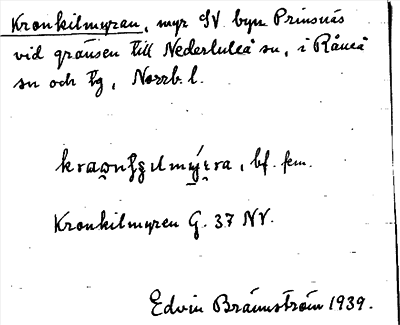 Kronkilmyran, myr SV. byn Prinsnäs
vid gränsen till Nederluleå sn, i Råneå
sn och tg, Norrb. l.
bf. fem.
Kronkilmyren G. 37 NV.
Edvin Brännström 1939.